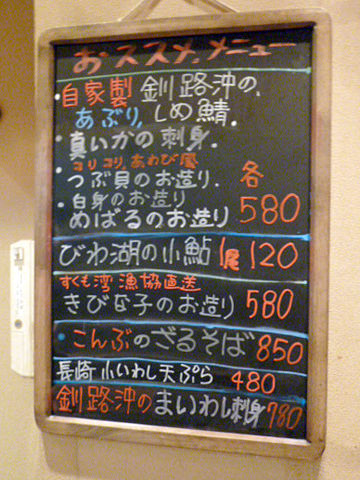 おススメ.メニュー
・自家製 釧路沖の、
あぶり、しめ鯖.
・真いかの刺身.
コリコリ、あわび風
・つぶ貝のお造り. 各
・白身のお造り
めばるのお造り 580
びわ湖の小鮎 1尾 120
すくも湾漁協直送
きびな子のお造り 580
・こんぶのざるそば 850
長崎小いわし天ぷら 480
釧路沖のまいわし刺身 780